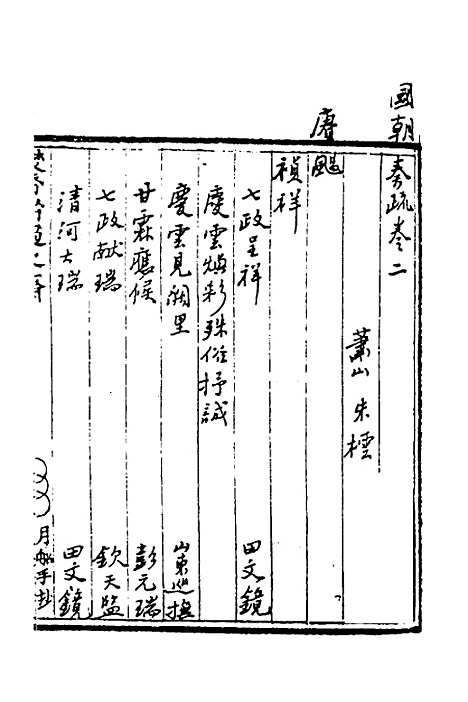 國朝奏疏卷二
蕭山 朱橒
賡颺
禎祥
七政呈祥 田文鏡
慶雲煥彩殊俗抒誠
慶雲見闕里 山東巡撫
甘霖應候 彭元瑞
七政献瑞 欽天監
清河大瑞 田文鏡
月船手抄